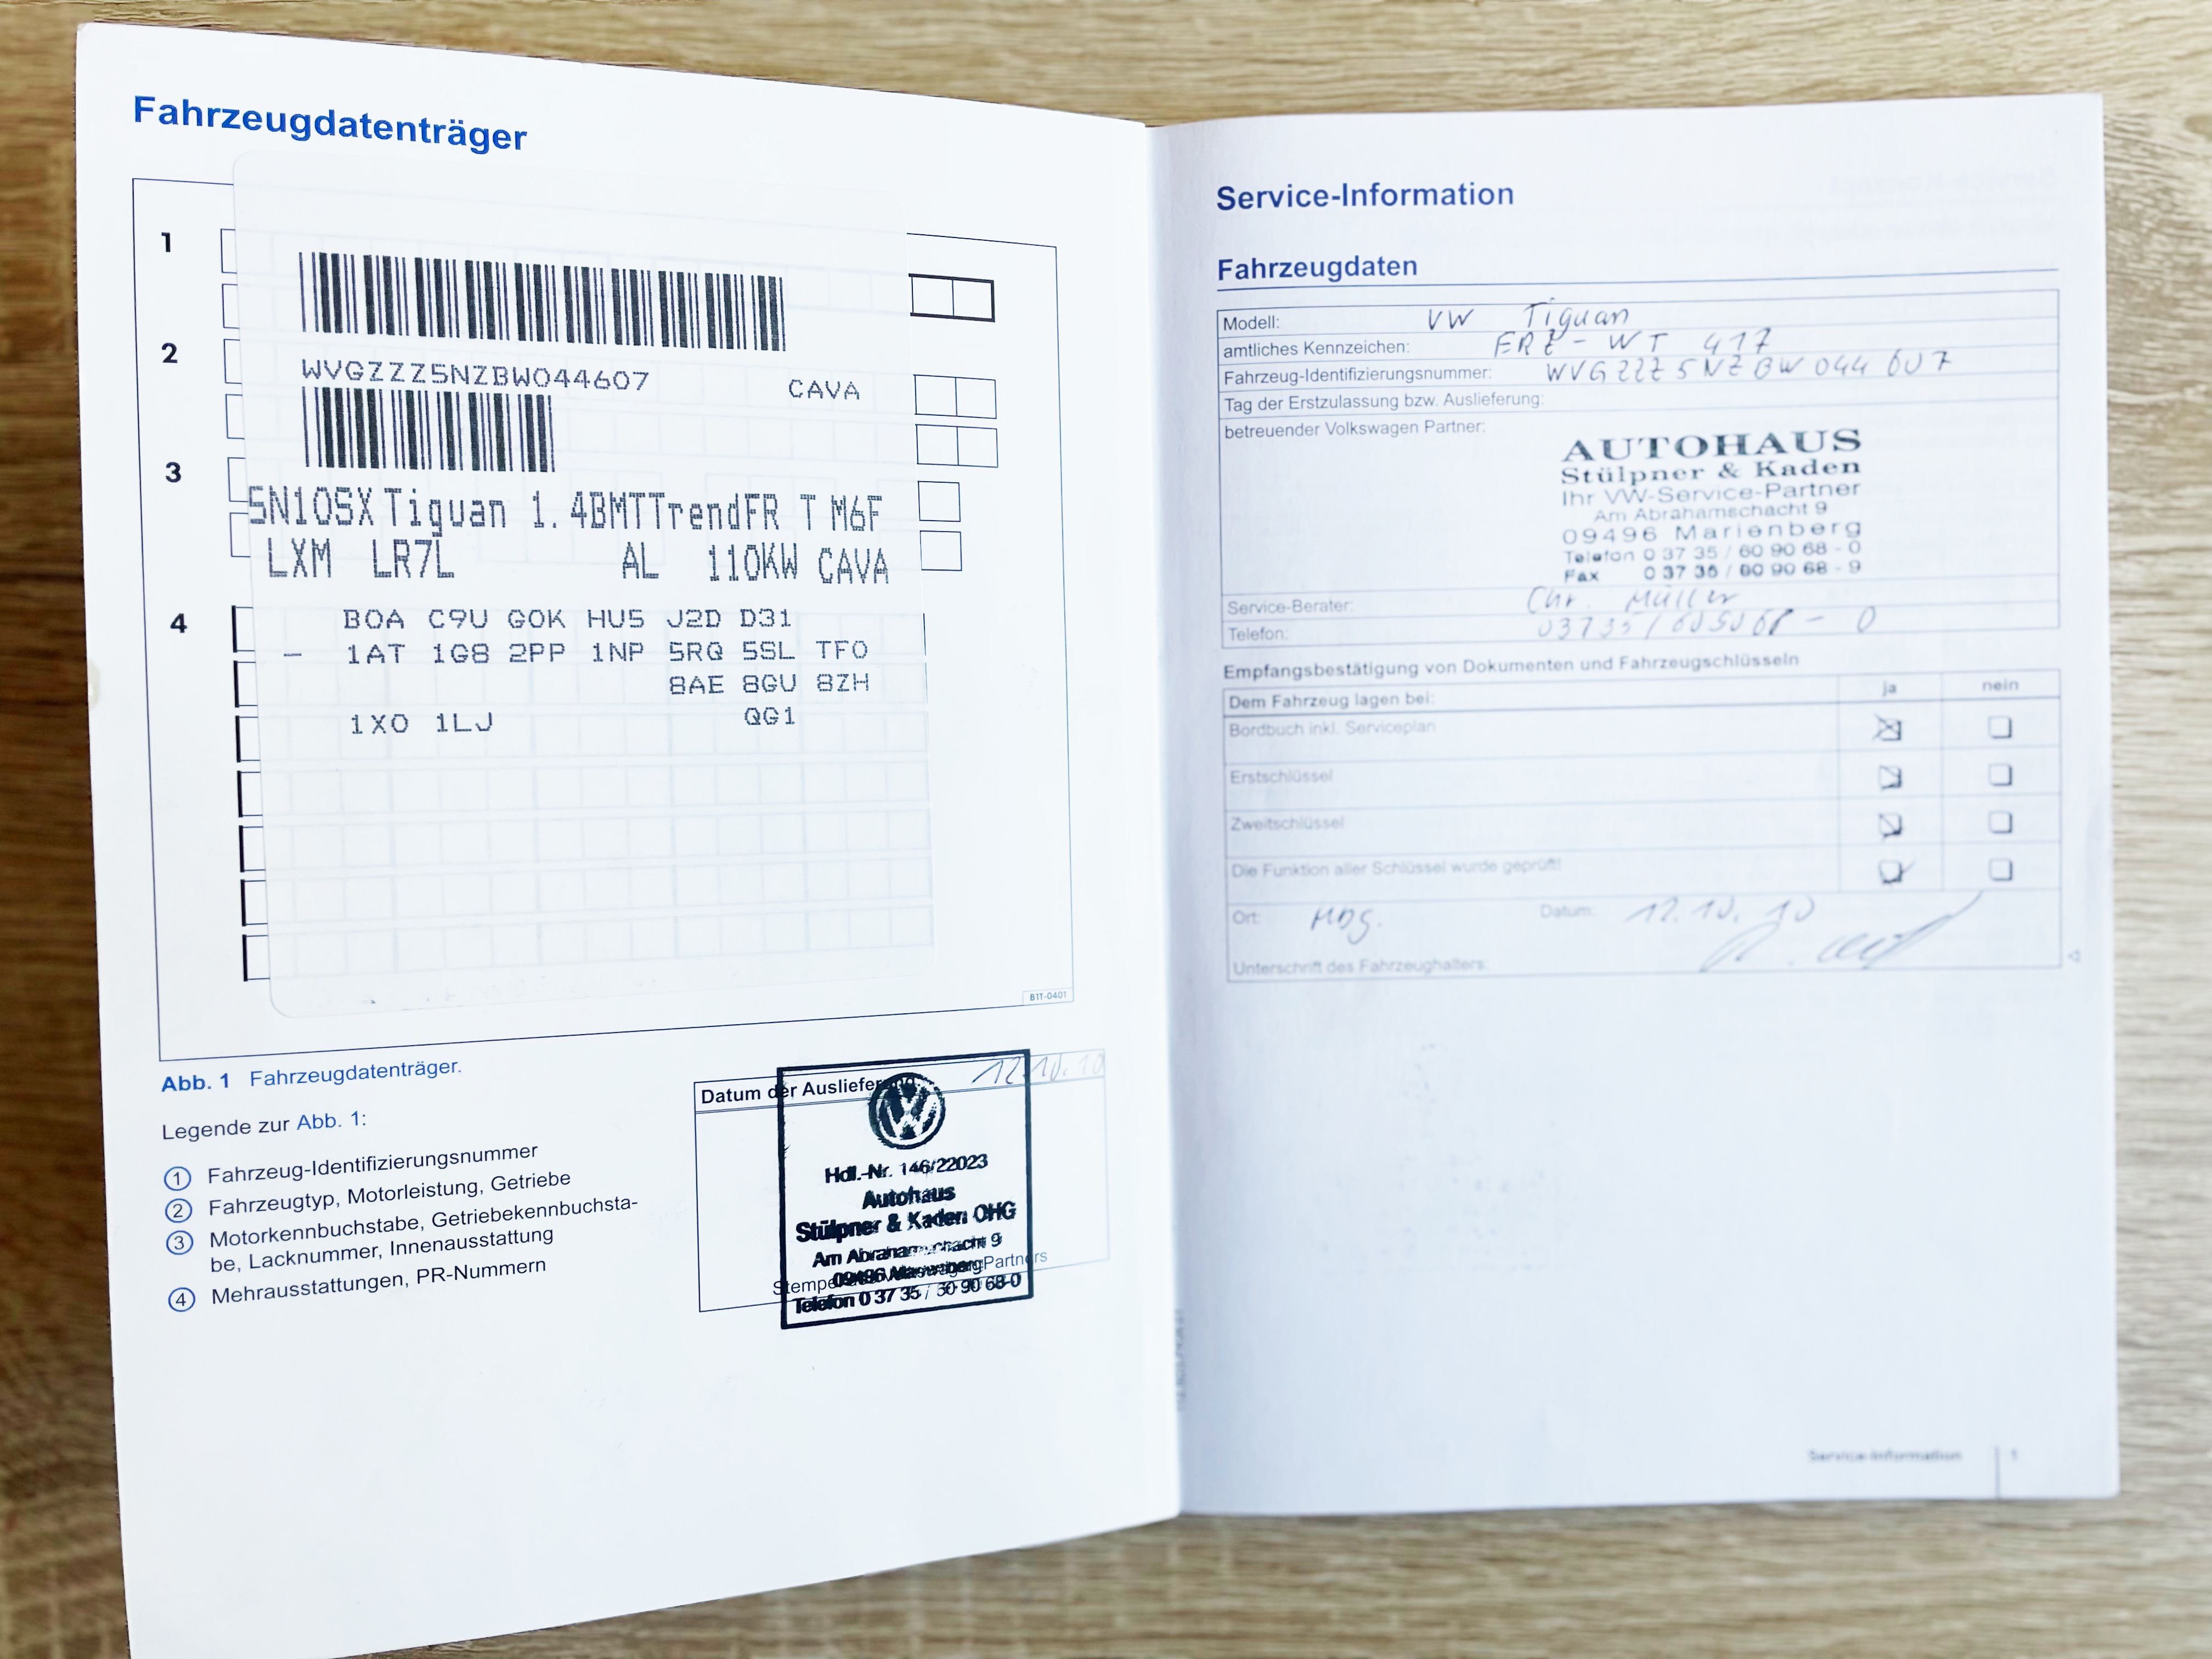 Fahrzeugdatenträger
1
2
WVGZZZ5NZBW044607 CAVA
3
5N10SX Tiguan 1.4BMTTrendFR T M6F
LXM LR7L AL 110KW CAVA
4
B0A C9U G0K HU5 J2D D31
— 1AT 1G8 2PP 1NP 5RQ 5SL TF0
8AE 8GU 8ZH
1X0 1LJ QG1
B1T-0401
Abb. 1 Fahrzeugdatenträger.
Legende zur Abb. 1:
1 Fahrzeug-Identifizierungsnummer
2 Fahrzeugtyp, Motorleistung, Getriebe
3 Motorkennbuchstabe, Getriebekennbuchsta-
be, Lacknummer, Innenausstattung
4 Mehrausstattungen, PR-Nummern
Datum der Auslieferung 12.10.10
Hdl.-Nr. 146/22023
Autohaus
Stülpner & Kaden OHG
Am Abrahamschacht 9
09496 Marienberg
Telefon 0 37 35 / 60 90 68-0
Service-Information
Fahrzeugdaten
Modell: VW Tiguan
amtliches Kennzeichen: ERZ - WT 417
Fahrzeug-Identifizierungsnummer: WVGZZZ5NZBW044607
Tag der Erstzulassung bzw. Auslieferung:
betreuender Volkswagen Partner:
AUTOHAUS
Stülpner & Kaden
Ihr VW-Service-Partner
Am Abrahamschacht 9
09496 Marienberg
Telefon 0 37 35 / 60 90 68 - 0
Fax 0 37 35 / 60 90 68 - 9
Service-Berater: Chr. Müller
Telefon: 03735/609068 - 0
Empfangsbestätigung von Dokumenten und Fahrzeugschlüsseln
Dem Fahrzeug lagen bei: ja nein
Bordbuch inkl. Serviceplan
Erstschlüssel
Zweitschlüssel
Die Funktion aller Schlüssel wurde geprüft!
Ort: Mbg. Datum: 12.10.10
Unterschrift des Fahrzeughalters:
Service-Information 1